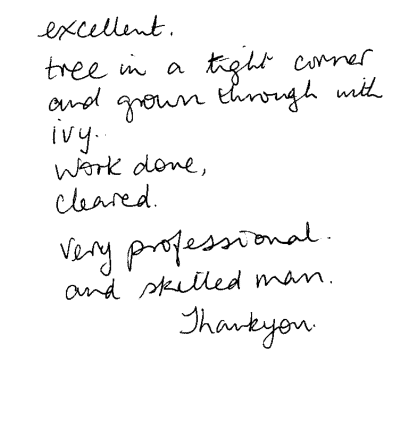 excellent.
tree in a tight corner
and grown through with
ivy.
Work done,
cleared.
Very professional.
and skilled man.
Thankyou.